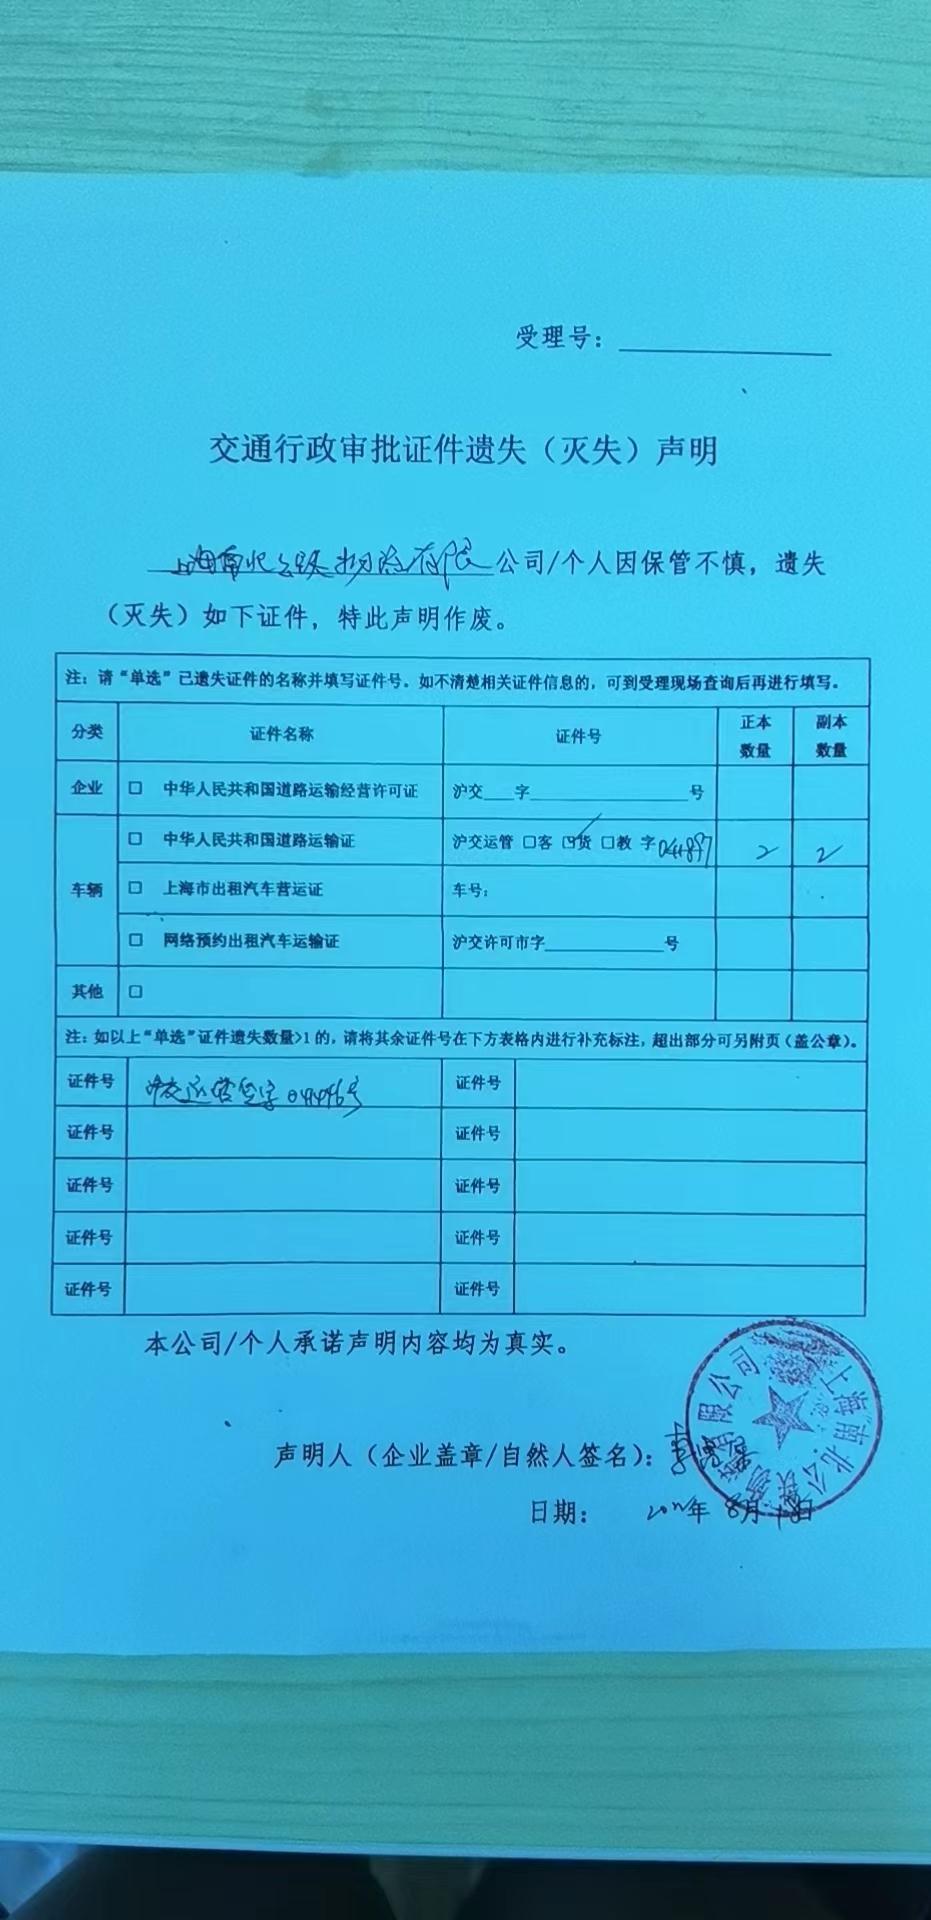 受理号：
交通行政审批证件遗失（灭失）声明
上海南北公铁物流有限公司/个人因保管不慎，遗失
（灭失）如下证件，特此声明作废。
注：请“单选”已遗失证件的名称并填写证件号。如不清楚相关证件信息的，可到受理现场查询后再进行填写。
分类 证件名称 证件号 正本数量 副本数量
企业 □ 中华人民共和国道路运输经营许可证 沪交____字____号
车辆 □ 中华人民共和国道路运输证 沪交运管 □客 ☑货 □教 字 2 2
□ 上海市出租汽车营运证 车号：
□ 网络预约出租汽车运输证 沪交许可市字____号
其他 □
注：如以上“单选”证件遗失数量>1的，请将其余证件号在下方表格内进行补充标注，超出部分可另附页（盖公章）。
证件号 沪交运管货字 号 证件号
证件号 证件号
证件号 证件号
证件号 证件号
证件号 证件号
本公司/个人承诺声明内容均为真实。
上海南北公铁物流有限公司
声明人（企业盖章/自然人签名）：
日期： 年 8月 日